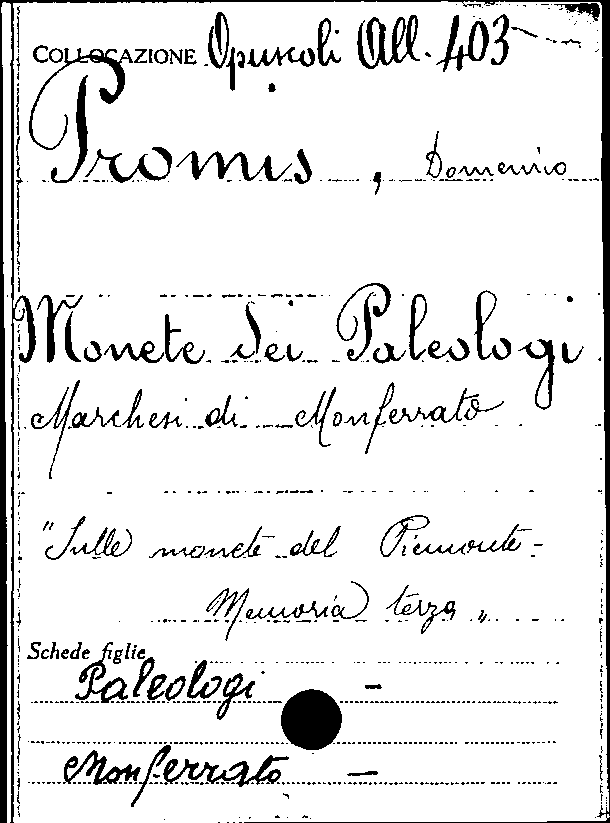 COLLOCAZIONE Opuscoli All. 403
Promis, Domenico
Monete dei Paleologi
Marchesi di Monferrato
"Sulle monete del Piemonte -
Memoria terza„
Schede figlie
Paleologi -
Monferrato -